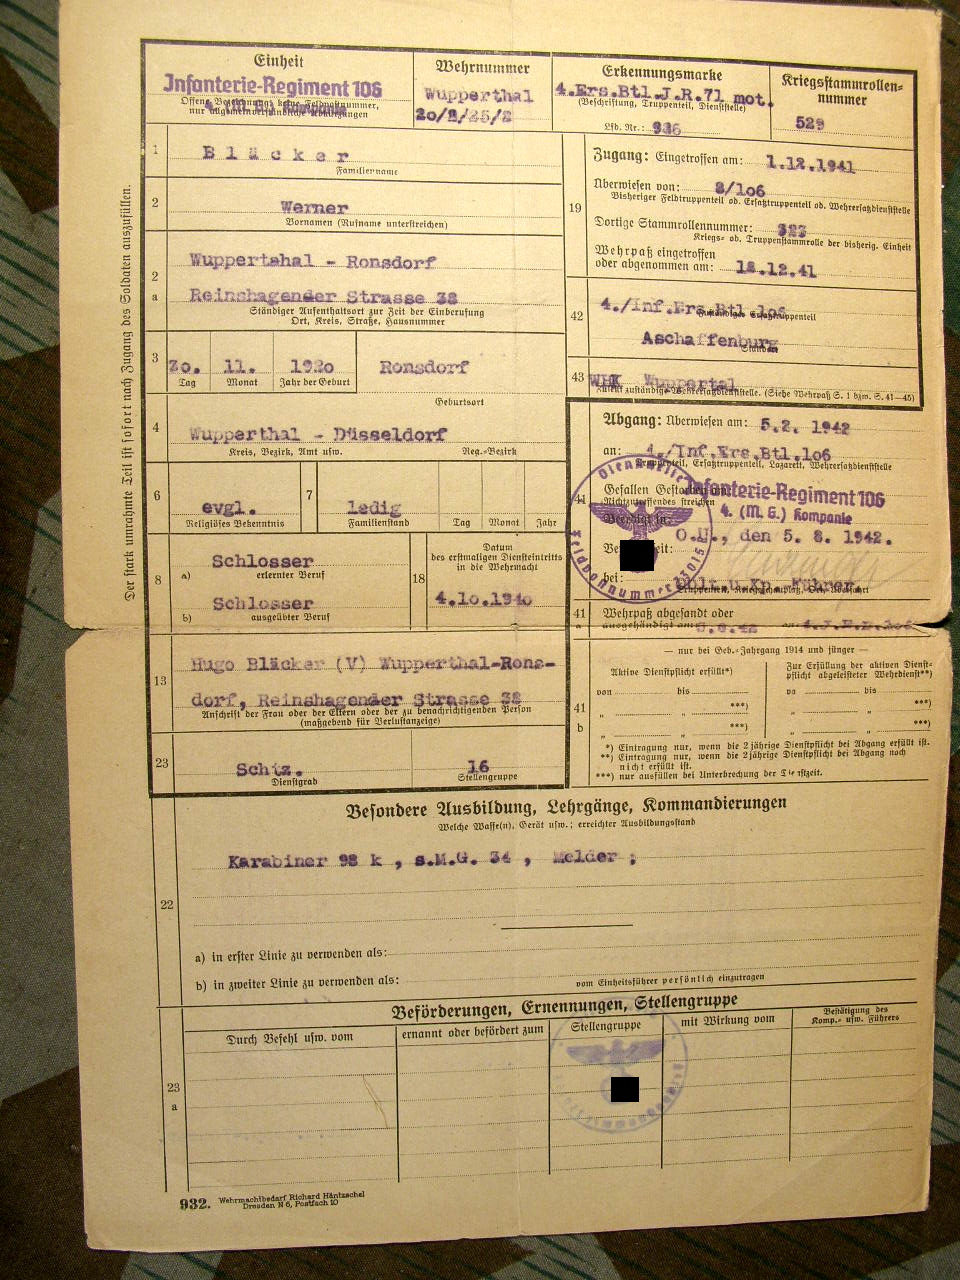 Der stark umrahmte Teil ist sofort nach Zugang des Soldaten auszufüllen.
Einheit
Infanterie-Regiment 106
Wehrnummer
Wupperthal
Erkennungsmarke
4.Ers.Btl.J.R.71 mot.
(Beschriftung, Truppenteil, Dienststelle)
Lfd. Nr.: 936
Kriegsstammrollen-
nummer
529
1
Bläcker
Familienname
2
Werner
Vornamen (Rufname unterstreichen)
2
a
Wuppertahal - Ronsdorf
Reinshagender Strasse 38
Ständiger Aufenthaltsort zur Zeit der Einberufung
Ort, Kreis, Straße, Hausnummer
3
11. 192o Ronsdorf
Tag Monat Jahr der Geburt
Geburtsort
4
Wupperthal - Düsseldorf
Kreis, Bezirk, Amt usw. Reg.-Bezirk
6
evgl.
Religiöses Bekenntnis
7
ledig
Familienstand Tag Monat Jahr
8
a)
Schlosser
erlernter Beruf
b)
Schlosser
ausgeübter Beruf
18
Datum
des erstmaligen Diensteintritts
in die Wehrmacht
4.1o.194o
13
Hugo Bläcker (V) Wupperthal-Rons-
dorf, Reinshagender Strasse 38
Anschrift der Frau oder der Eltern oder der zu benachrichtigenden Person
(maßgebend für Verlustanzeige)
23
Schtz.
Dienstgrad
16
Stellengruppe
19
Zugang: Eingetroffen am: 1.12.1941
Überwiesen von: 8/1o6
Bisheriger Feldtruppenteil ob. Ersatztruppenteil ob. Wehrersatzdienststelle
Dortige Stammrollennummer:
Kriegs- ob. Truppenstammrolle der bisherig. Einheit
Wehrpaß eingetroffen
oder abgenommen am: 18.12.41
42
4./Inf.Ers.Btl.1o6
Aschaffenburg
43
WBK Wuppertal
Zuletzt zuständige Wehrersatzdienststelle. (Siehe Wehrpaß S. 1 bzw. S. 41—45)
Abgang: Überwiesen am: 5.2. 1942
an: 4./Inf.Ers.Btl.1o6
Truppenteil, Ersatztruppenteil, Lazarett, Wehrersatzdienststelle
41
Gefallen
Nichtzutreffendes streichen
Infanterie-Regiment 106
4. (M.G.) Kompanie
O.U., den 5. 8. 1942.
bei:
Oblt.u.Kp.-Führer.
Dienststelle
Feldpostnummer
41
a
Wehrpaß abgesandt oder
ausgehändigt am
— nur bei Geb.-Jahrgang 1914 und jünger —
41
b
Aktive Dienstpflicht erfüllt*)
von bis
„ „ ***)
„ „ ***)
Zur Erfüllung der aktiven Dienst-
pflicht abgeleisteter Wehrdienst**)
vo bis
„ „ ***)
„ „ ***)
*) Eintragung nur, wenn die 2 jährige Dienstpflicht bei Abgang erfüllt ist.
**) Eintragung nur, wenn die 2 jährige Dienstpflicht bei Abgang noch
nicht erfüllt ist.
***) nur ausfüllen bei Unterbrechung der
22
Besondere Ausbildung, Lehrgänge, Kommandierungen
Welche Waffe(n), Gerät usw.; erreichter Ausbildungsstand
Karabiner 98 k , s.M.G. 34 , Melder ;
a) in erster Linie zu verwenden als:
b) in zweiter Linie zu verwenden als:
vom Einheitsführer persönlich einzutragen
23
a
Beförderungen, Ernennungen, Stellengruppe
Durch Befehl usw. vom
ernannt oder befördert zum
Stellengruppe
mit Wirkung vom
Bestätigung des
Komp.- usw. Führers
932. Wehrmachtbedarf Richard Häntzschel
Dresden N 6, Postfach 10